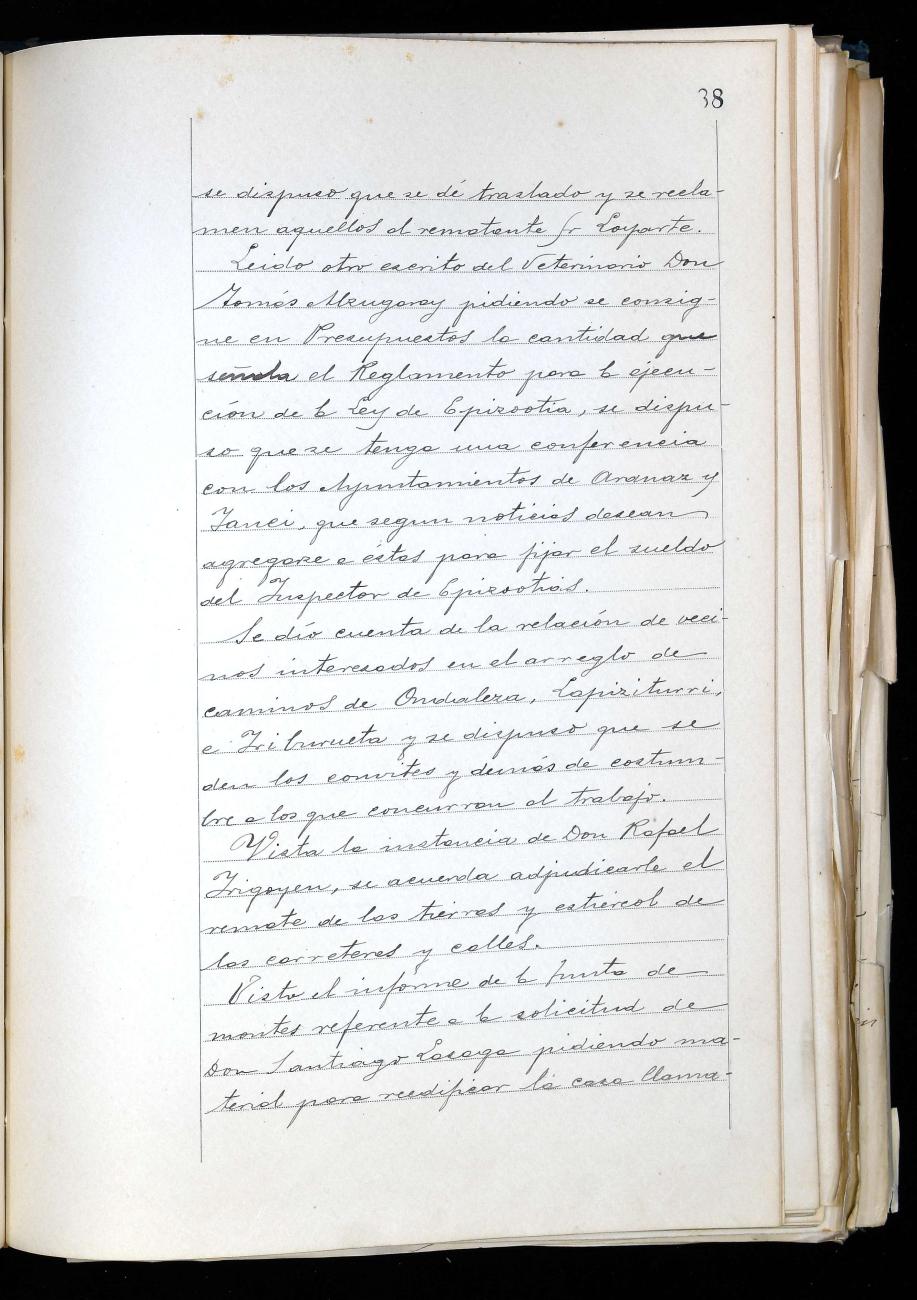 38
se dispuso que se dé traslado y se recla-
men aquellos al rematante Sr Loyarte.
Leido otro escrito del Veterinario Don
Tomás Alzugaray pidiendo se consig-
ne en Presupuestos la cantidad que
señala el Reglamento para la ejecu-
ción de la Ley de Epizootia, se dispu-
so que se tenga una conferencia
con los Ayuntamientos de Aranaz y
Yanci, que segun noticias desean
agregarse a éstas para fijar el sueldo
del Inspector de Epizootias.
Se dío cuenta de la relación de veci-
nos interesados en el arreglo de
caminos de Ondaleza, Lapiziturri,
e Iriburueta y se dispuso que se
den los convites y demás de costum-
bre a los que concurran al trabajo.
Vista la instancia de Don Rafael
Irigoyen, se acuerda adjudicarle el
remate de las tierras y estiércol de
las carreteras y calles.
Visto el informe de la Junta de
montes referente a la solicitud de
Don Santiago Lasaga pidiendo ma-
terial para reedificar la casa llama-